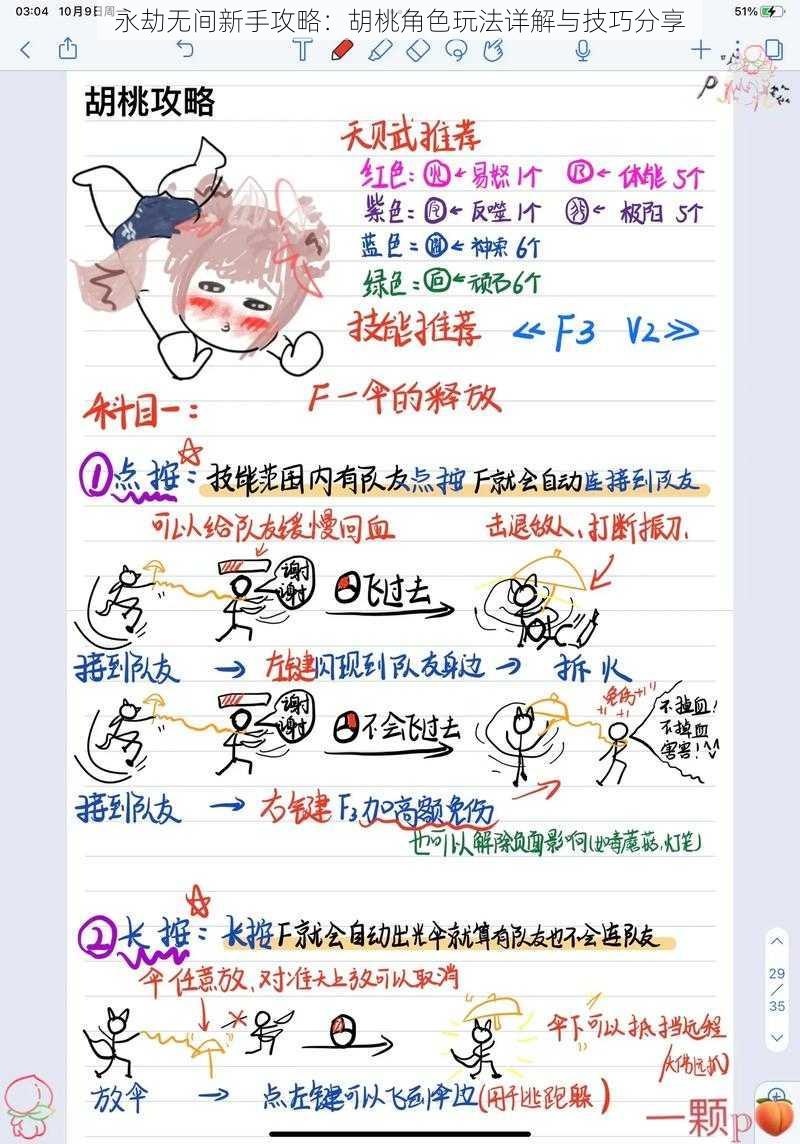 03:04 10月9日周一
永劫无间新手攻略：胡桃角色玩法详解与技巧分享
51%
胡桃攻略
天贝武推荐
红色：火←易怒1个 尺←体能5个
紫色：反←反噬1个 ←极阳5个
蓝色：←神索6个
绿色：石←顽石6个
技能推荐 《F3 V2》
科目一：
F—伞的释放
①点按：技能范围内有队友点按F就会自动连接到队友
可以给队友缓慢回血
击退敌人、打断振刀.
谢谢
飞过去
接到队友 → 左键闪现到队友身边 → 拆火
谢谢
不会飞过去
免伤+1
不掉血！
不掉血
害害！
接到队友 → 右键F3加高额免伤
也可以解除负面影响(如毒蘑菇,灯笔)
②长按：长按F就会自动出光伞就算有队友也不会连队友
伞任意放、对准天上放可以取消
伞下可以抵挡远程
放伞 → 点左键可以飞到伞边(用于逃跑躲)
29
35
一颗p